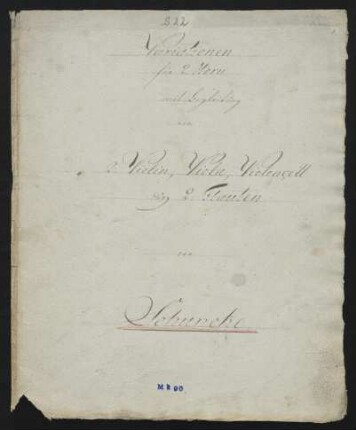 S 22
Variationen
für 2 Horn
mit Begleitung
von
2 Violin, Viola, Violoncell
und 2 Flauten
von
Schuncke.
M B 90